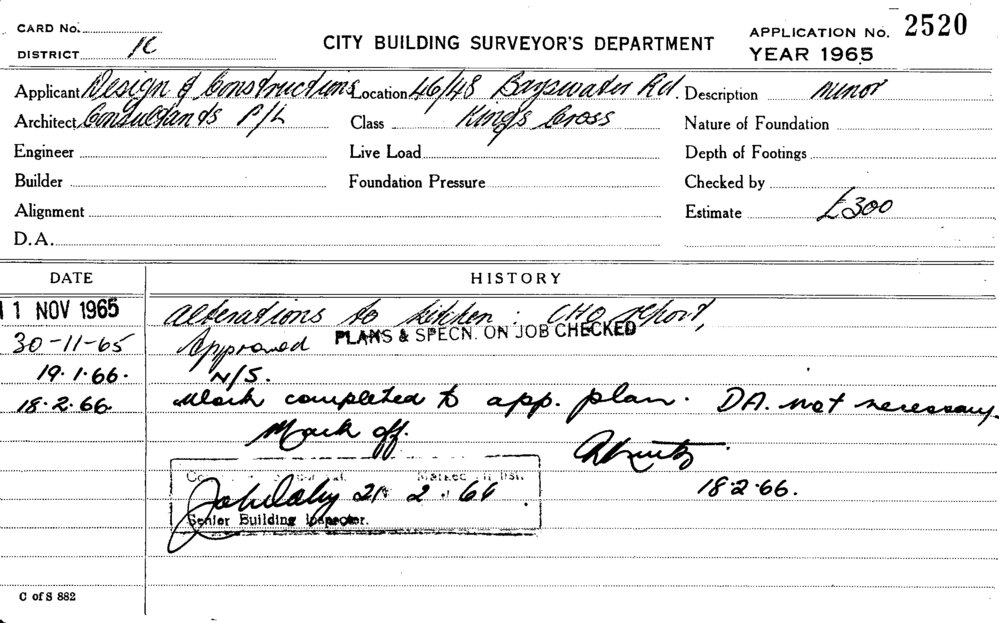 CARD No.
DISTRICT
CITY BUILDING SURVEYOR'S DEPARTMENT
APPLICATION No. 2520
YEAR 1965
Applicant Design & Constructions Location 46/48 Bayswater Rd. Description minor
Architect Consultants P/L Class Kings Cross Nature of Foundation
Engineer Live Load Depth of Footings
Builder Foundation Pressure Checked by
Alignment Estimate £300
D.A.
DATE HISTORY
11 NOV 1965 Alterations to kitchen : CHO report,
PLANS & SPECN. ON JOB CHECKED
30-11-65 Approved
19.1.66. N/S.
18.2.66. Work completed to app. plan. DA. not necessary.
Mark off.
18.2.66.
21 2 66
Senior Building Inspector.
C of S 882